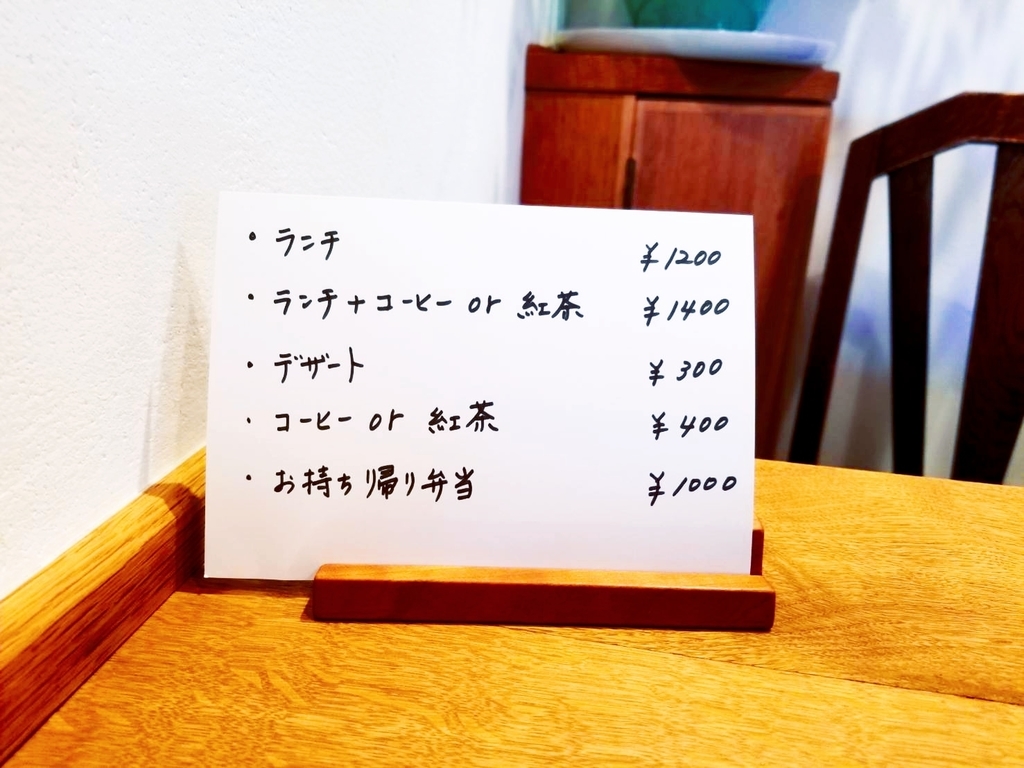 ・ランチ ¥1200
・ランチ+コーヒー or 紅茶 ¥1400
・デザート ¥300
・コーヒー or 紅茶 ¥400
・お持ち帰り弁当 ¥1000